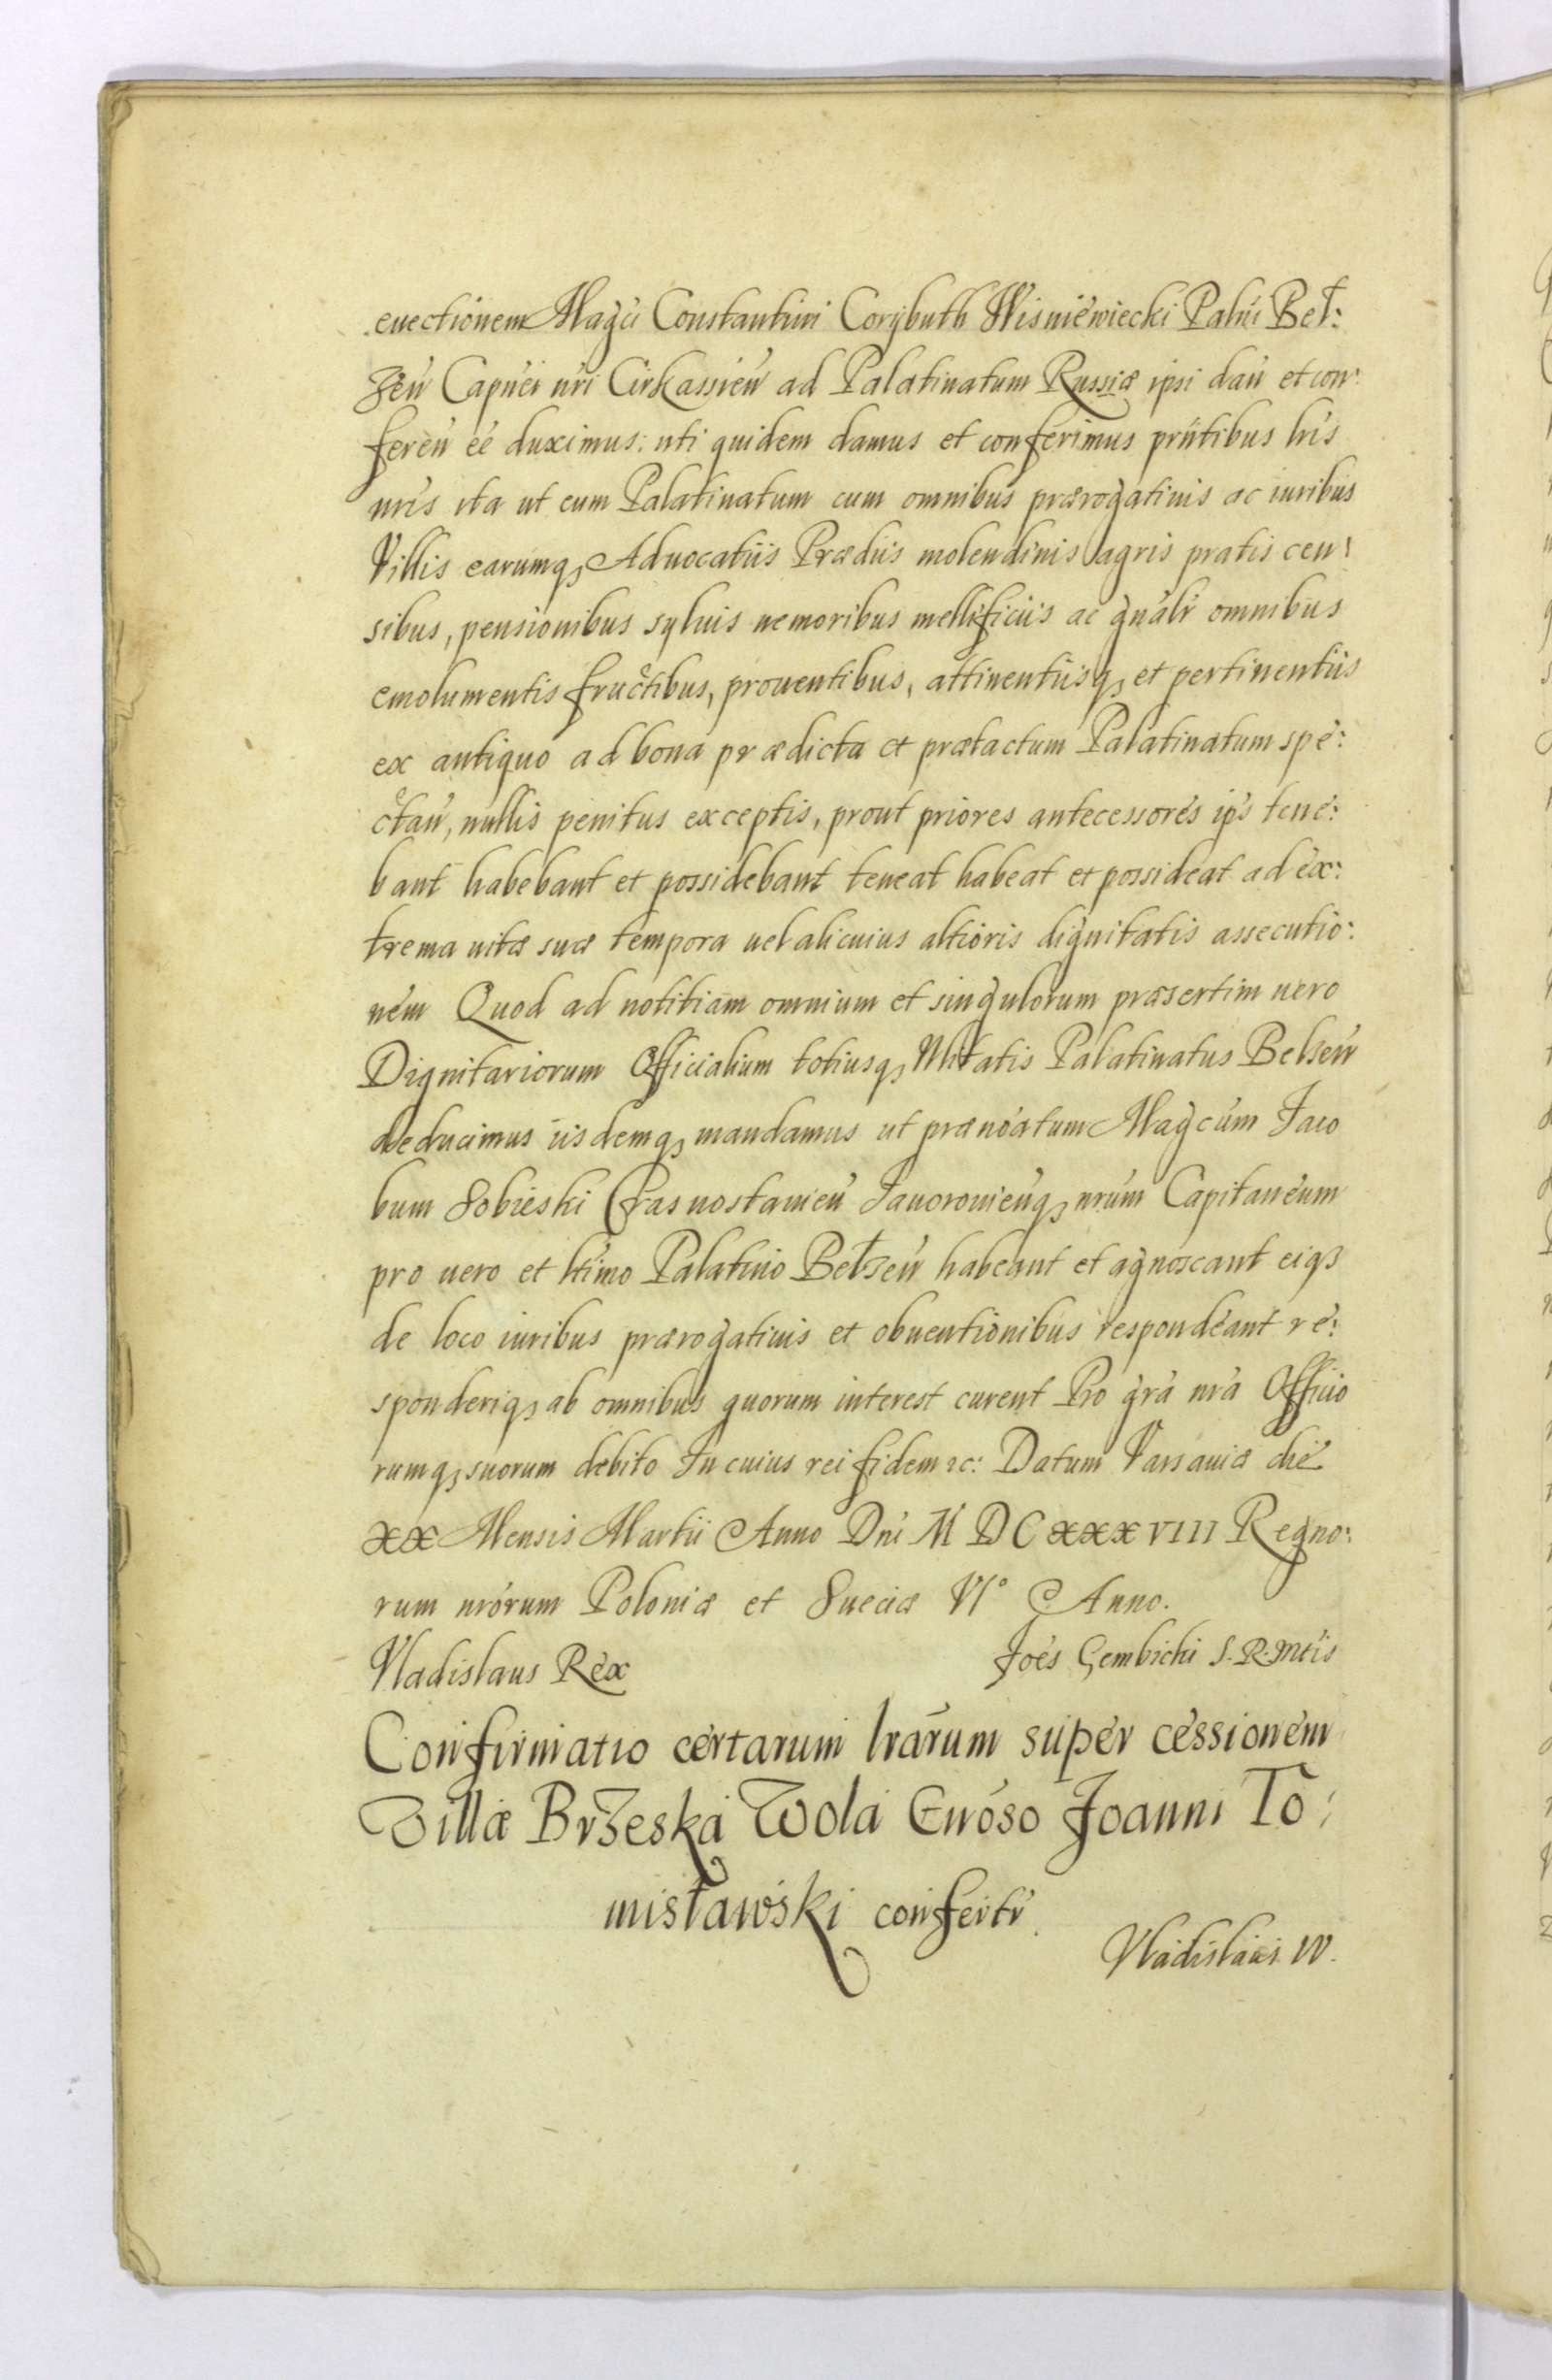 euectionem Magci Constantini Corÿbuth Wisniewiecki Palni Beł:
zeń Capnei nri Cirkassień ad Palatinatum Russiæ ipsi dań et con:
fereń ee duximus: uti quidem damus et conferimus pntibus lris
nris ita ut eum Palatinatum cum omnibus prærogatiuis ac iuribus
Villis earumqȝ Aduocatiis Prædiis molendinis agris pratis cen:
sibus, pensionibus syluis nemoribus mellificiis ac gnalr omnibus
emolumentis fructibus, prouentibus, attinentiisqȝ et pertinentiis
ex antiquo ad bona prædicta et prætactum Palatinatum spe:
ctań, nullis penitus exceptis, prout priores antecessores ips tene:
bant habebant et possidebant teneat habeat et possideat ad ex:
trema uitæ suæ tempora uel alicuius altioris dignitatis assecutio:
nem Quod ad notitiam omnium et singulorum præsertim uero
Dignitariorum Officialium totiusqȝ Nlitatis Palatinatus Belzeń
deducimus iisdemqȝ mandamus ut prænoatum Magcum Iaco
bum Sobieski Crasnostauień Iauorouieńqȝ nrum Capitaneum
pro uero et ltimo Palatino Bełzeń habeant et agnoscant eiqȝ
de loco iuribus prærogatiuis et obuentionibus respondeant re:
sponderiqȝ ab omnibus quorum interest curent Pro gra nra Officio
rumqȝ suorum debito In cuius rei fidem ɿc: Datum Varsauiæ die
XX Mensis Martii Anno Dni M DC XXX VIII Regno:
rum nrorum Poloniæ et Sueciæ VIº Anno.
Vladislaus Rex Joes Gembicki S. R. Mtis
Confirmatio certarum lrarum super cessionem
Villæ Brzeska Wola Gnroso Joanni To:
misławski confertr
Vladislaus IV.